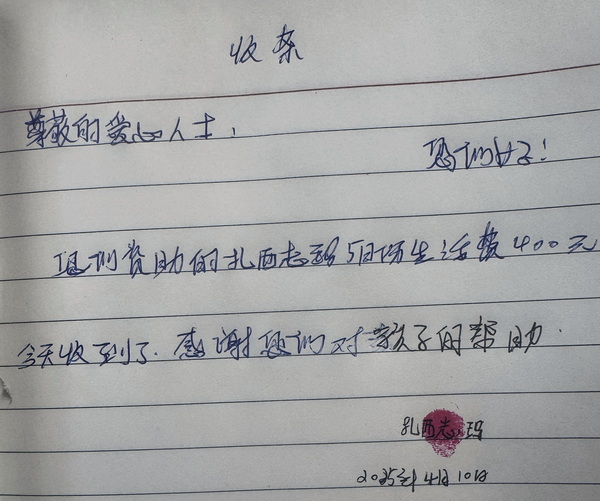 收条
尊敬的爱心人士，
您们好！
您们资助的扎西志玛5月份生活费400元
今天收到了.感谢您们对孩子的帮助.
扎西志玛
2025年4月10日